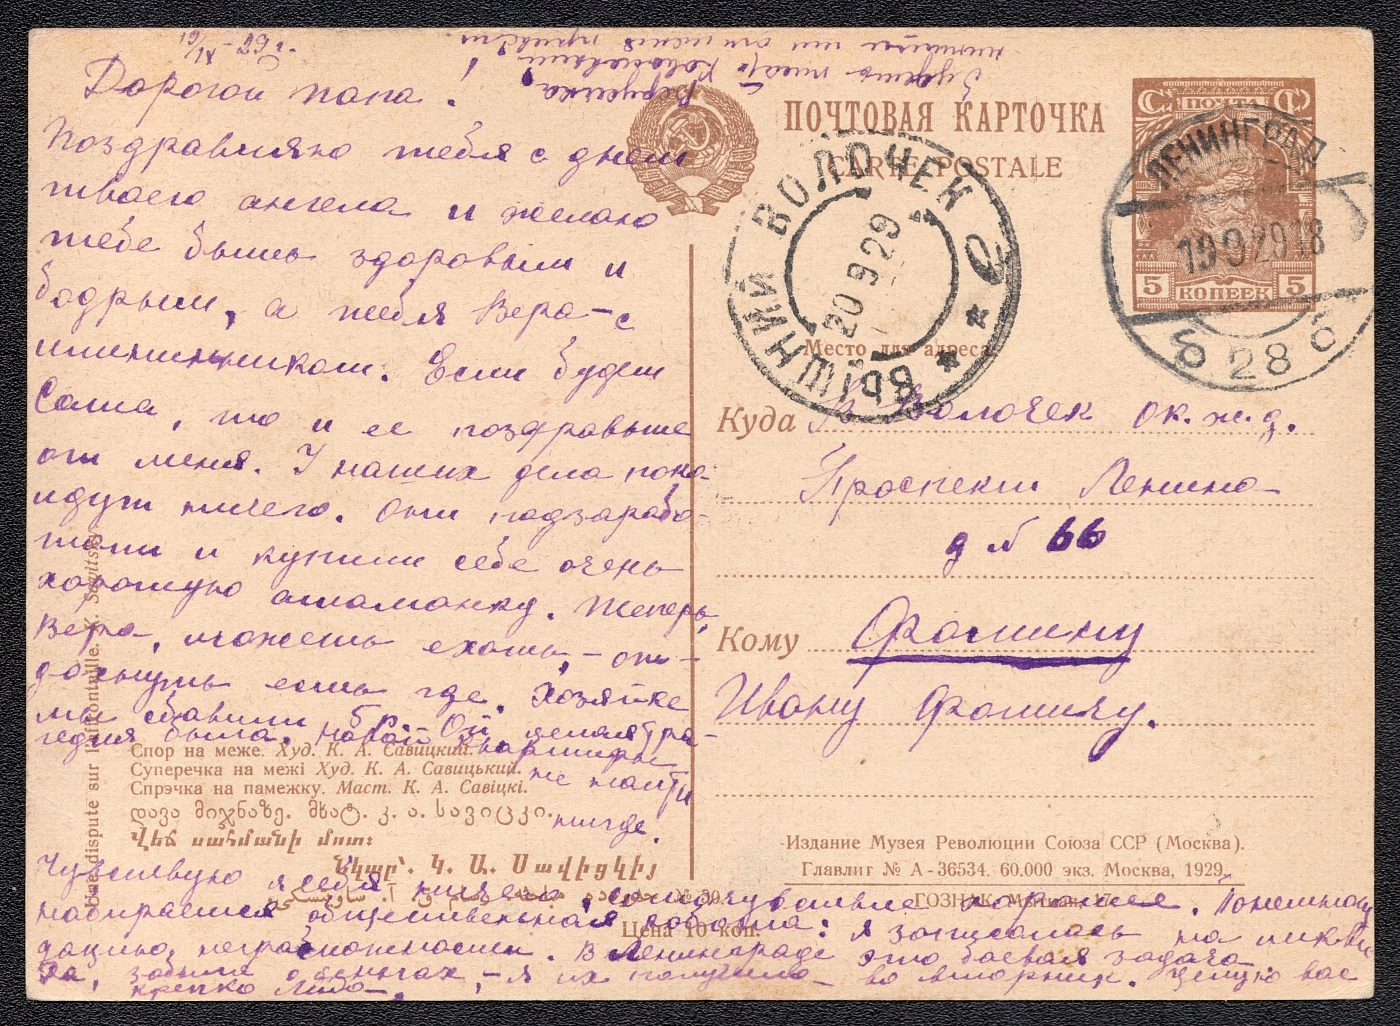 19/IX-29 г.
Дорогой папа!
Поздравляю тебя с днем
твоего ангела и желаю
тебе быть здоровым и
бодрым, а тебя Вера - с
именинником. Если будет
Саша, то и ее поздравьте
от меня. У наших дела пока
идут ничего. Они подзарабо-
тали и купили себе очень
хорошую атаманку. Теперь,
Вера, можешь ехать, - от-
дохнуть есть где. Хозяйке
мы сбавили 5 р. Ой целая тра-
гедия была. Новой квартиры
не найти
нигде.
Чувствую я себя ничего, самочувствие хорошее. Понемногу
набирается общественная работа: я записалась на ликви-
дацию неграмотности. В Ленинграде это боевая задача.
Да, забыла о деньгах, - я их получила - во вторник. Целую вас
крепко Лида.
Будешь писать
напиши им от меня привет.
Веруська
ПОЧТОВАЯ КАРТОЧКА
CARTE POSTALE
ПОЧТА
5 КОПЕЕК 5
ЛЕНИНГРАД
19 9 29 18
б 28 б
ВЫШНИЙ ВОЛОЧЕК
20 9 29
Место для адреса
Куда В. Волочек ок. ж. д.
Проспект Ленина
д № 66
Кому Фомину
Ивану Фомичу.
Une dispute sur l'affrontaille. K. Savitsky
Спор на меже. Худ. К. А. Савицкий.
Суперечка на межі Худ. К. А. Савицький.
Спрэчка на памежку. Маст. К. А. Савіцкі.
დავა მიჯნაზე. მხატ. კ. ა. სავიცკი.
Վեճ սահմանի մոտ:
Նկար՝ Կ. Ա. Սավիցկիյ
№ 30.
Цена 10 коп.
Издание Музея Революции Союза ССР (Москва).
Главлит № А-36534. 60.000 экз. Москва, 1929.
ГОЗНАК.